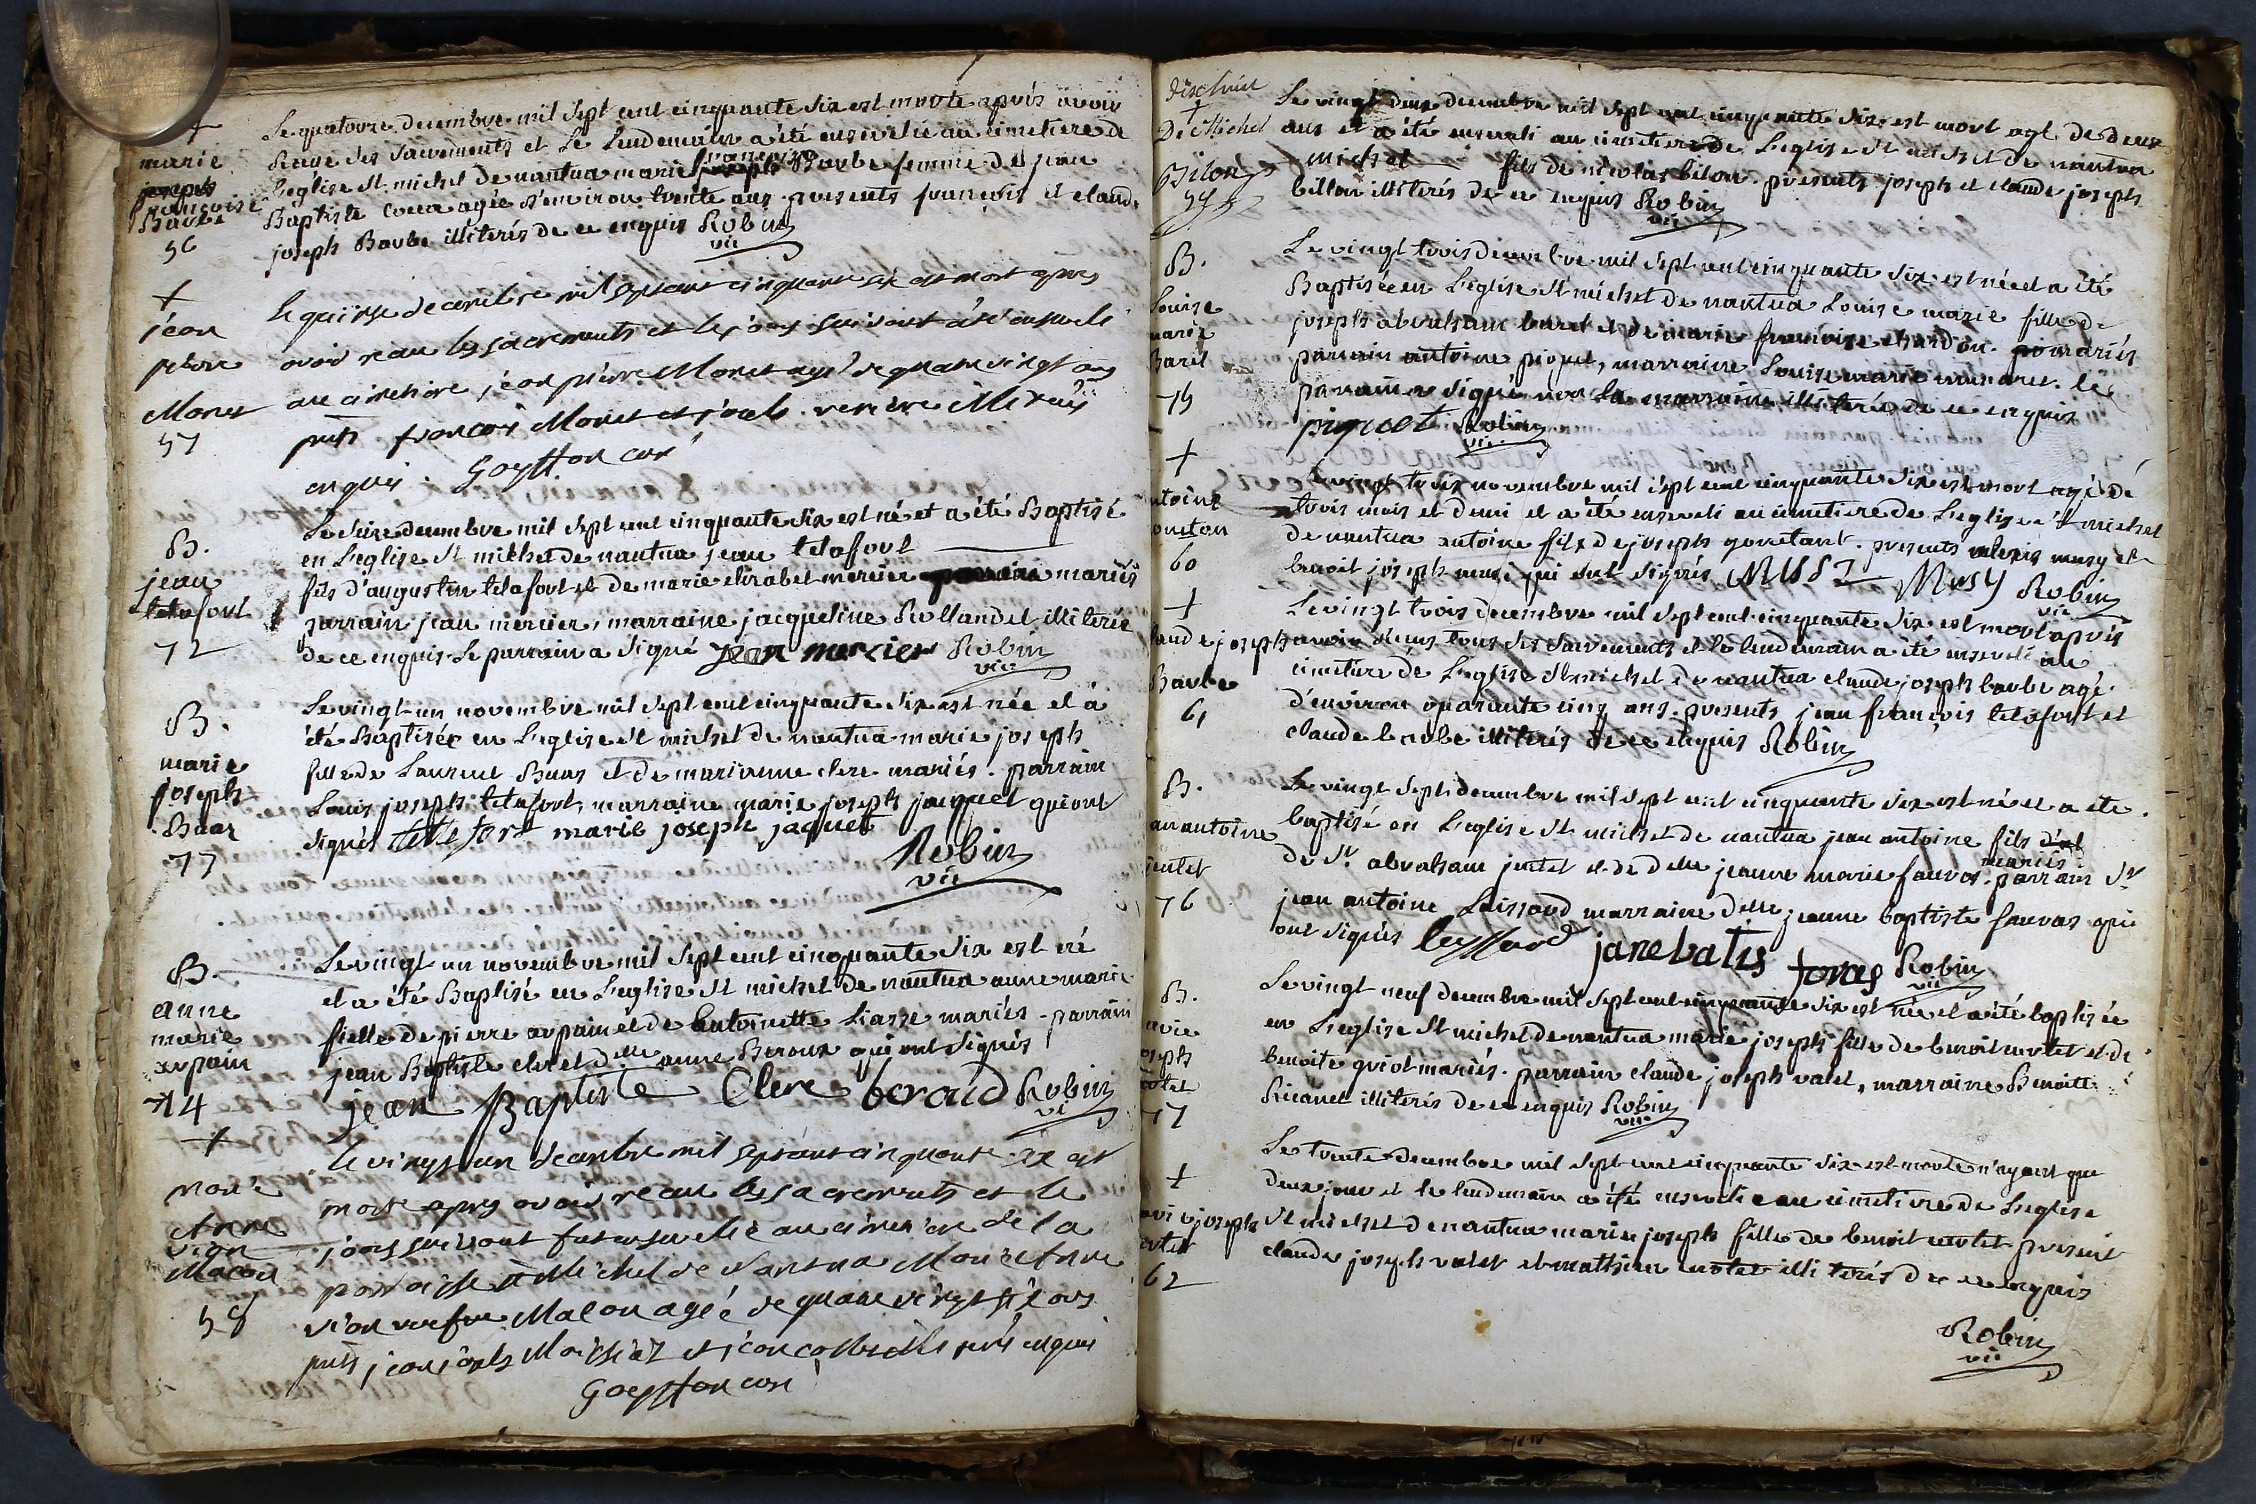 +
marie
françoise
Barbe
56
Le quatorze decembre mil sept cent cinquante six est morte après avoir
Reçue ses sacrements et le lendemain a été ensevelie au cimetiere de
l'eglise st michel de nantua marie françoise Barbe femme de jean
Baptiste agée d'environ trente ans presents françois et claude
joseph Barbe illiterés de ce enquis Robin
vic
+
jean
pierre
Monet
57
le quinze decembre mil sept cent cinquante six est mort apres
avoir receu les sacrements et le jour suivant a été enseveli
au cimetiere jean pierre Monet agé de quatre vingt ans
pnts francois Monet et joseph illiterés
enquis. Goyffon curé
B.
jean
telafort
72
Le seize decembre mil sept cent cinquante six est né et a été Baptisé
en L'eglise st michel de nantua jean telafort
fils d'augustin telafort et de marie elizabet mercier mariés
parrain jean mercier, marraine jacqueline Rollandet illiterée
de ce enquis. Le parrain a signé jean mercier Robin
vic
B.
marie
joseph
Baar
73
Le vingt un novembre mil sept cent cinquante six est née et a
été Baptisée en L'eglise st michel de nantua marie joseph
fille de Laurent Baar et de marianne clerc mariés. parrain
Louis joseph telafort, marraine marie joseph jacquet qui ont
signés telefort marie joseph jaquet
Robin
vic
B.
anne
marie
arpain
74
Le vingt un novembre mil sept cent cinquante six est né
et a été Baptisé en L'eglise st michel de nantua anne marie
fielle de pierre arpain et de antoinette Liasse mariés. parrain
jean Baptiste clerc et delle anne Beroux qui ont signés
jean Baptiste Clerc beraud Robin
vic
+
marie
Anne
vion
Macon
58
le vingt un decembre mil sept cent cinquante six est
morte apres avoir receu les sacrements et le
jour suivant fut ensevelie au cimetiere de la
paroisse st Michel de Nantua Marie Anne
vion veufve Macon agée de quatre vingt six ans
pnts jean joseph et jean illiterés enquis
Goyffon curé
dixhuit
+
De Michel
Bilon
59
Le vingt deux decembre mil sept cent cinquante six est mort agé de deux
ans et a été enseveli au cimetiere de L'eglise st michel de nantua
michel fils de nicolas bilon. presents joseph et claude joseph
billon illiterés de ce enquis Robin
vic
B.
Louise
marie
Baret
75
Le vingt trois decembre mil sept cent cinquante six est née et a été
Baptisée en L'eglise st michel de nantua Louise marie fille de
joseph abraham baret et de marie françoise chardon. mariés
parrain antoine piquet, marraine Louise marie le
parrain a signé non la marraine illiterée de ce enquis
piquet Robin
vic
+
60
Le vingt trois novembre mil sept cent cinquante six est mort agé de
trois mois et demi et a été enseveli au cimetiere de L'eglise st michel
de nantua antoine fils de joseph gonetant. presents musy et
benoit joseph musi qui ont signés Musy Robin
vic
+
aude joseph
Barbe
61
Le vingt trois decembre mil sept cent cinquante six est mort après
avoir reçus tous ses sacrements et le lendemain a été enseveli au
cimetiere de L'eglise st michel de nantua claude joseph barbe agé
d'environ quarante cinq ans. presents jean françois telafort et
claude barbe illiterés de ce enquis Robin
B.
an antoine
jentet
76
Le vingt sept decembre mil sept cent cinquante six est né et a été
baptisé en L'eglise st michel de nantua jean antoine fils
de sr abraham jentet et de delle jeanne marie fauvas. mariés parrain sr
jean antoine Laissard marraine delle jeanne baptiste fauvas qui
ont signés leyssard jane batis Robin
vic
B.
arie
oseph
77
Le vingt neuf decembre mil sept cent cinquante six est née et a été baptisée
en L'eglise St michel de nantua marie joseph fille de benoit et de
benoite guiot mariés. parrain claude joseph valet, marraine Benoitte
illiterés de ce enquis Robin
vic
+
arie joseph
62
Le trente decembre mil sept cent cinquante six est morte n'ayant que
deux jour et le lendemain a été ensevelie au cimetiere de L'eglise
st michel de nantua marie joseph fille de benoit present
claude joseph valet et mathieu illiterés de ce enquis
Robin
vic